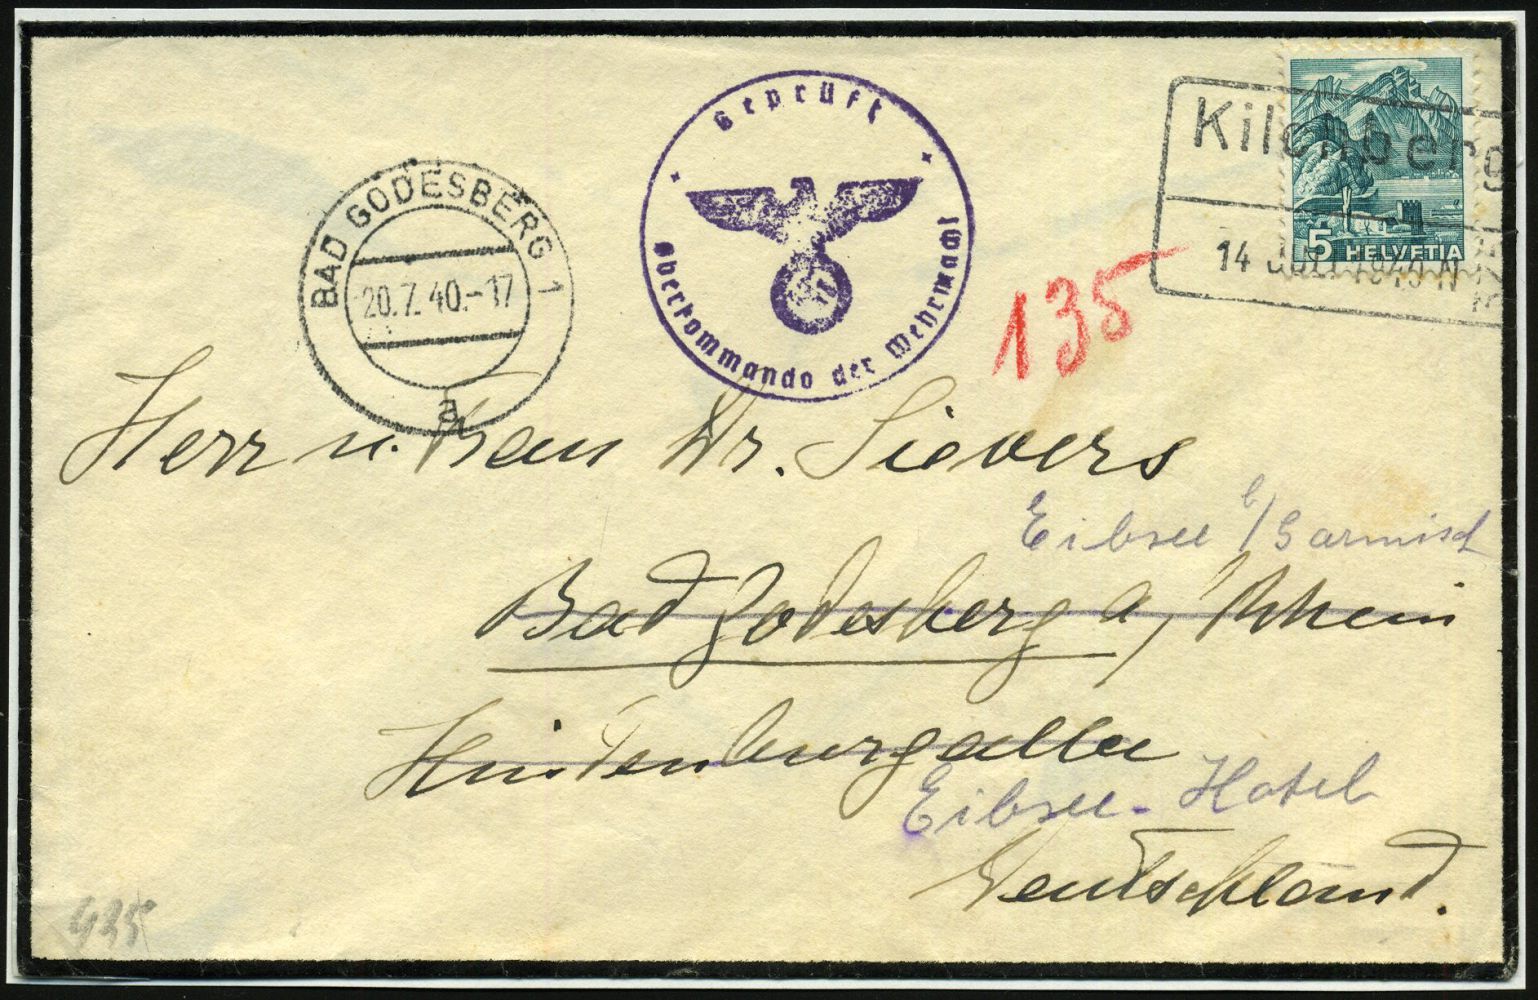 Geprüft
Oberkommando der Wehrmacht
Kilchberg
14 JULI 1940 N
5 HELVETIA
BAD GODESBERG 1
20.7.40.-17
a
135
Herr u. Frau Dr. Sievers
Eibsee b/Garmisch
Bad Godesberg a/Rhein
Hindenburgallee
Eibsee-Hotel
Deutschland.